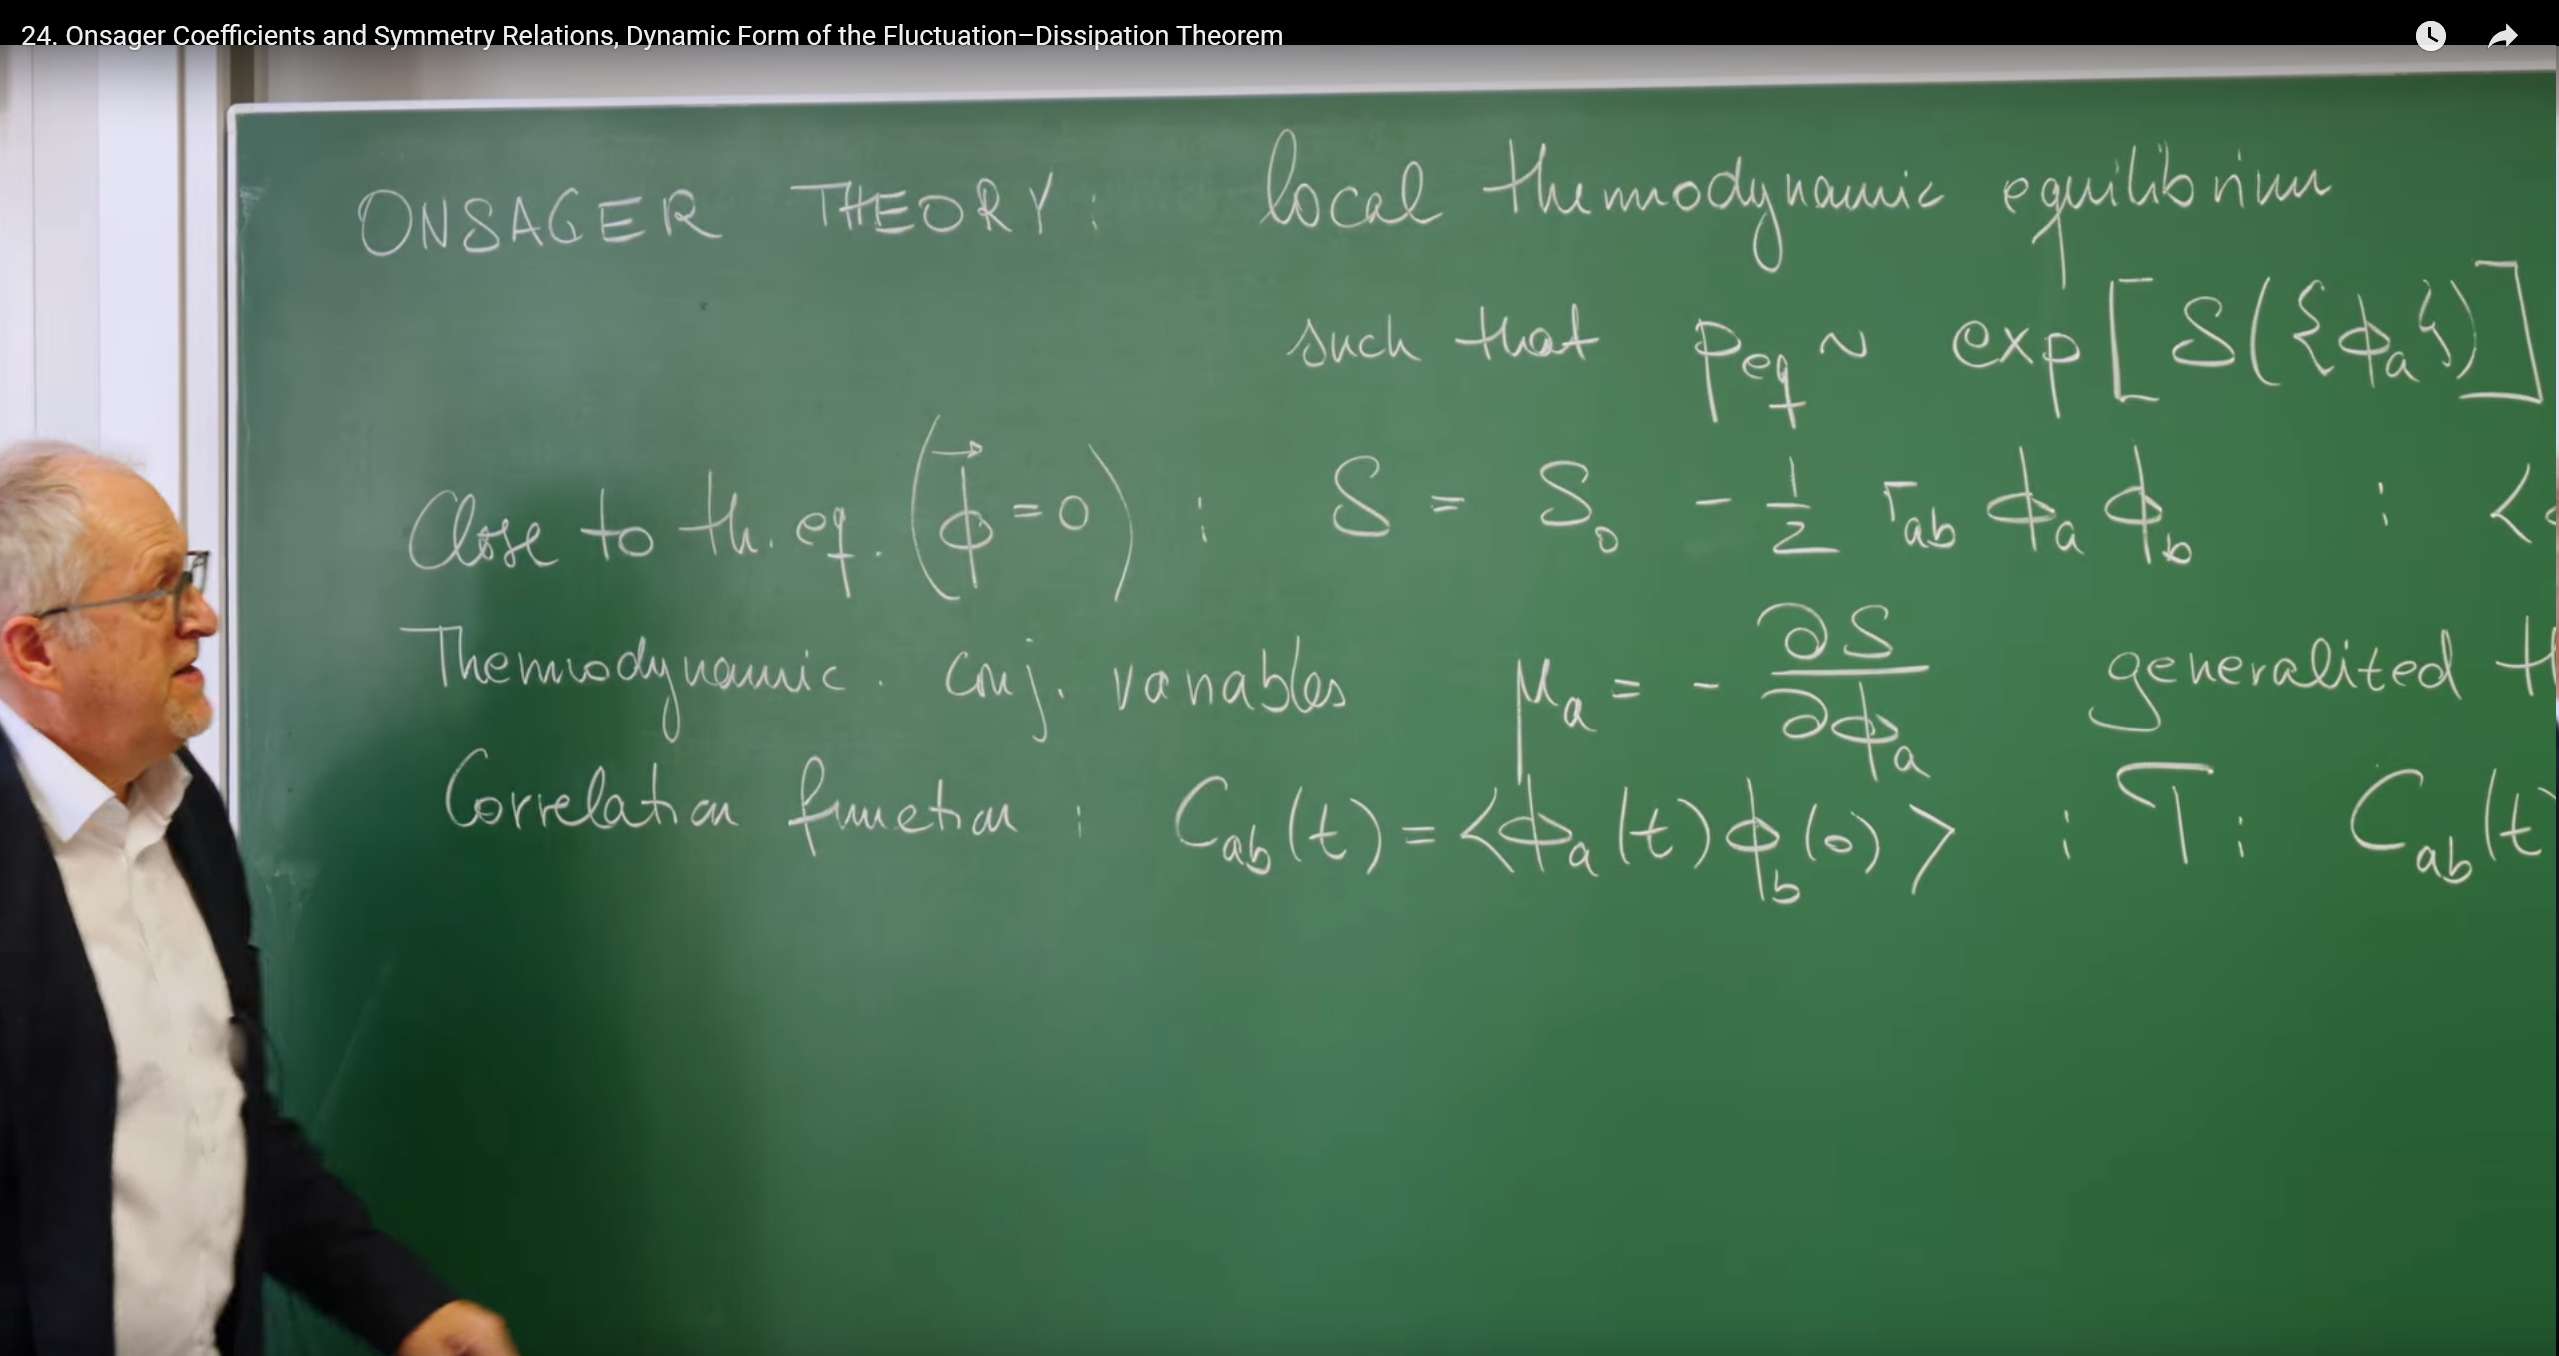 24. Onsager Coefficients and Symmetry Relations, Dynamic Form of the Fluctuation–Dissipation Theorem
ONSAGER THEORY: local thermodynamic equilibrium
such that p_eq ~ exp[S({ϕ_a})]
Close to th. eq. (ϕ⃗ = 0) : S = S_0 - 1/2 r_ab ϕ_a ϕ_b : <
Thermodynamic. conj. variables μ_a = - ∂S/∂ϕ_a generalited
Correlation function : C_ab(t) = <ϕ_a(t) ϕ_b(0)> ; T : C_ab(t